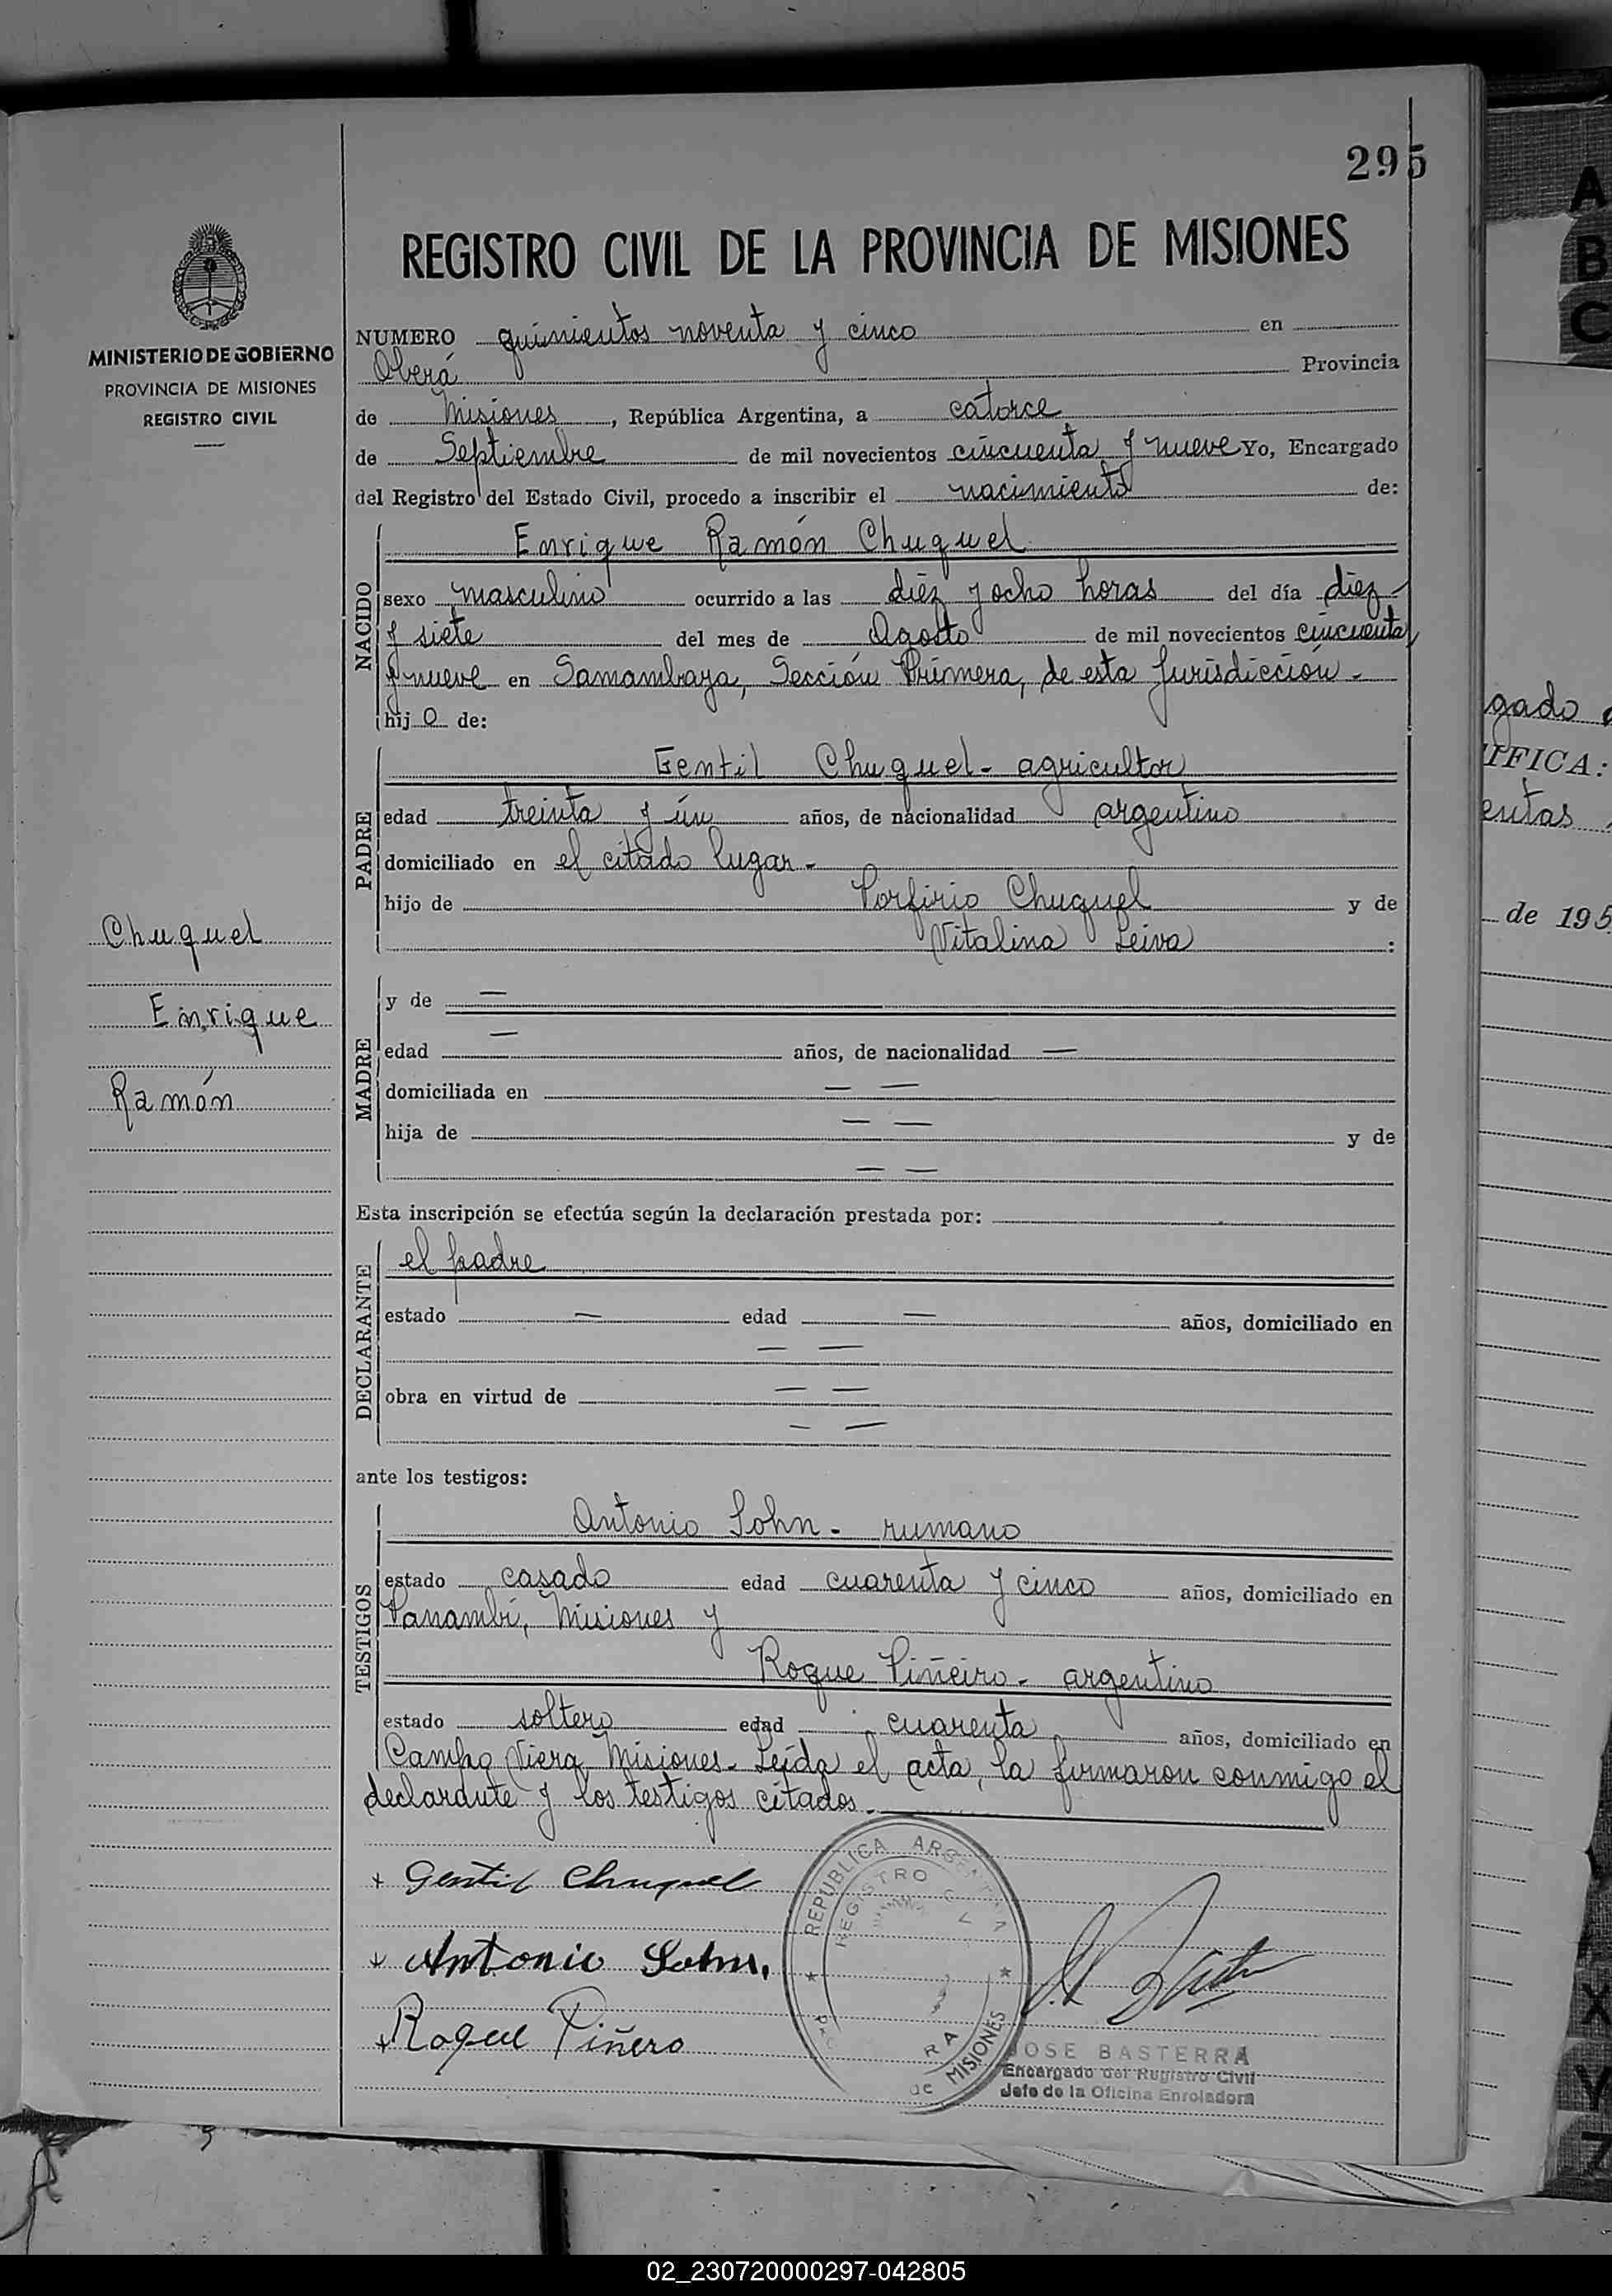 295
REGISTRO CIVIL DE LA PROVINCIA DE MISIONES
MINISTERIO DE GOBIERNO
PROVINCIA DE MISIONES
REGISTRO CIVIL
NUMERO quinientos noventa y cinco en
Oberá Provincia
de Misiones, República Argentina, a catorce
de Septiembre de mil novecientos cincuenta y nueve Yo, Encargado
del Registro del Estado Civil, procedo a inscribir el nacimiento de:
NACIDO
Enrique Ramón Chuquel
sexo masculino ocurrido a las diez y ocho horas del día diez
y siete del mes de Agosto de mil novecientos cincuenta
y nueve en Samambaya, Sección Primera, de esta Jurisdicción.-
hijo de:
PADRE
Gentil Chuquel - agricultor
edad treinta y ún años, de nacionalidad argentino
domiciliado en el citado lugar.-
hijo de Porfirio Chuquel y de
Vitalina Leiva :
Chuquel
Enrique
Ramón
MADRE
y de —
edad — años, de nacionalidad —
domiciliada en — —
hija de — — y de
— —
Esta inscripción se efectúa según la declaración prestada por:
DECLARANTE
el padre
estado — edad — años, domiciliado en
— —
obra en virtud de — —
— —
ante los testigos:
TESTIGOS
Antonio Sohn - rumano
estado casado edad cuarenta y cinco años, domiciliado en
Panambí, Misiones y
Roque Piñeiro - argentino
estado soltero edad cuarenta años, domiciliado en
Campo Viera Misiones.- Leída el acta, la firmaron conmigo el
declarante y los testigos citados.-
+ Gentil Chuquel
+ Antonio Sohn.
+ Roque Piñero
REPUBLICA ARGENTINA
REGISTRO
MISIONES
JOSE BASTERRA
Encargado del Registro Civil
Jefe de la Oficina Enroladora
gado
IFICA:
entas
de 195
A
B
C
X
Y
Z
02_230720000297-042805